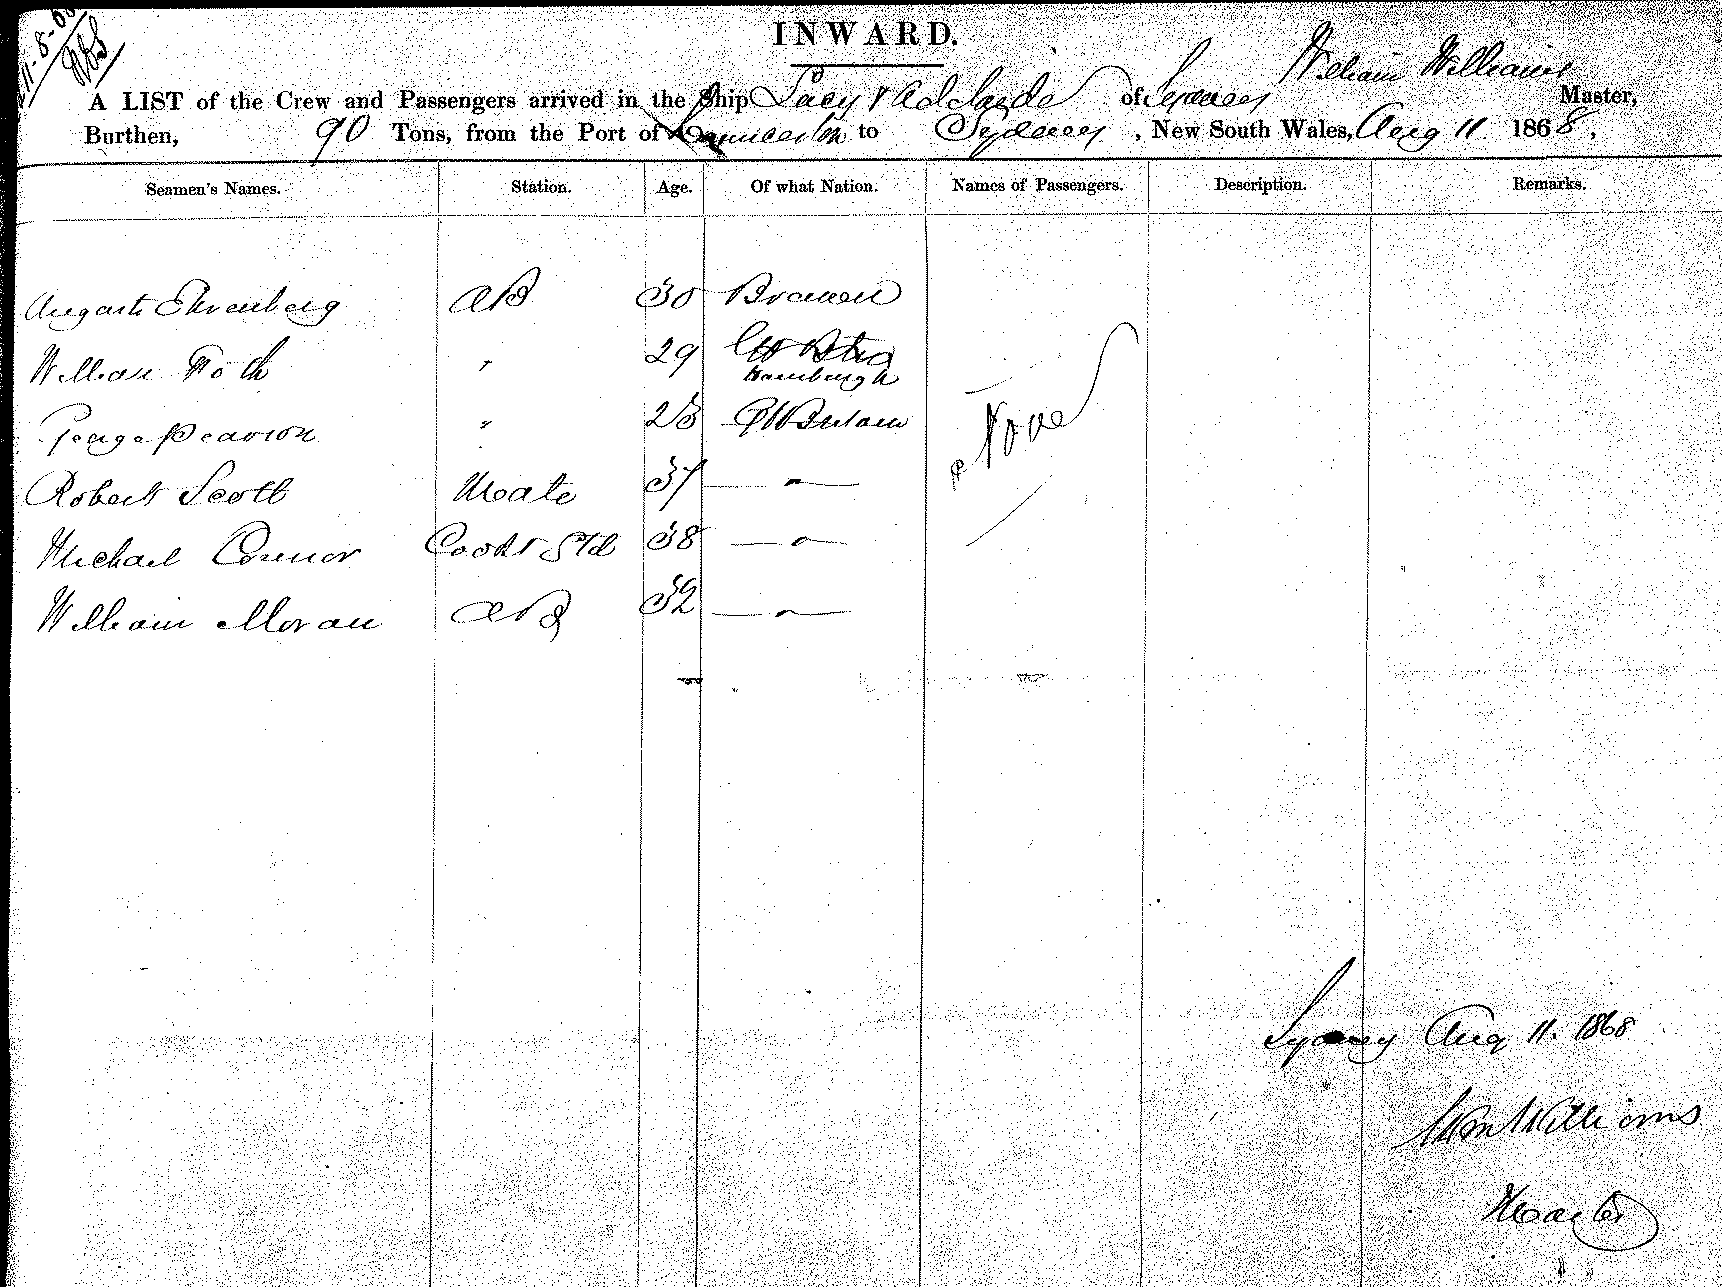 11-8-68
INWARD.
William Williams
A LIST of the Crew and Passengers arrived in the Ship Lucy & Adelaide of Sydney Master,
Burthen, 90 Tons, from the Port of Launceston to Sydney, New South Wales, Aug 11 1868,
Seamen's Names. Station. Age. Of what Nation. Names of Passengers. Description. Remarks.
August Ehrenberg AB 30 Bremen
William Roth " 29 Hamburgh
George Pearson " 23 Gt Britain
None
Robert Scott Mate 37 — " —
Michael Connor Cook & Std 38 — " —
William Moran AB 32 — " —
Sydney Aug 11. 1868
Wm Williams
Master